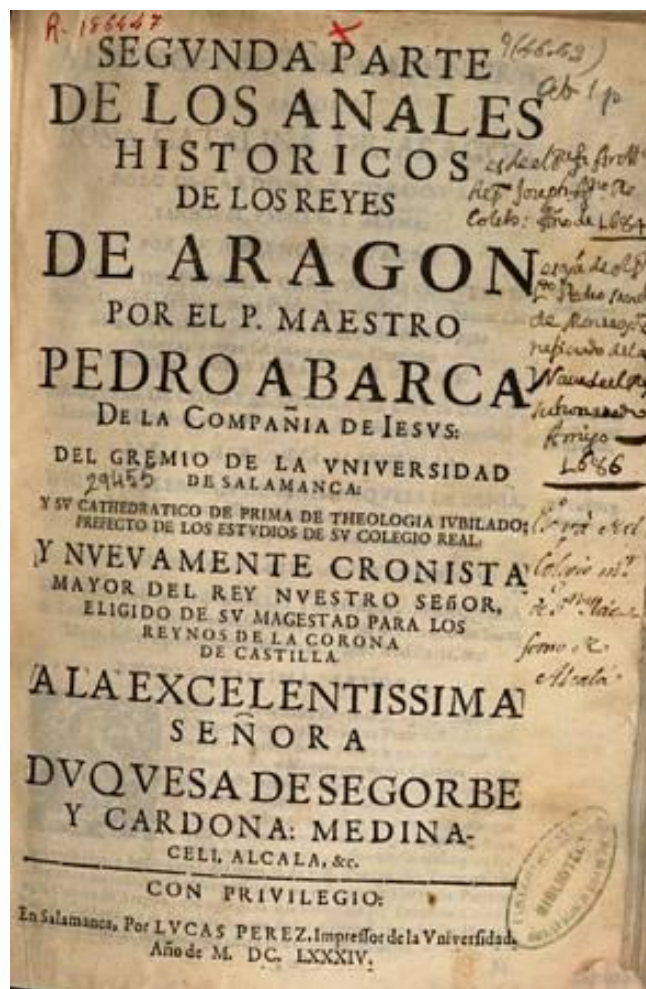 R-186447
SEGVNDA PARTE
DE LOS ANALES
HISTORICOS
DE LOS REYES
DE ARAGON
POR EL P. MAESTRO
PEDRO ABARCA
DE LA COMPAÑIA DE IESVS:
DEL GREMIO DE LA VNIVERSIDAD
DE SALAMANCA:
29455
Y SV CATHEDRATICO DE PRIMA DE THEOLOGIA IVBILADO;
PREFECTO DE LOS ESTVDIOS DE SV COLEGIO REAL:
Y NVEVAMENTE CRONISTA
MAYOR DEL REY NVESTRO SEñOR,
ELIGIDO DE SV MAGESTAD PARA LOS
REYNOS DE LA CORONA
DE CASTILLA.
A LA EXCELENTISSIMA
SEÑORA
DVQVESA DE SEGORBE
Y CARDONA: MEDINA-
CELI, ALCALA, &c.
CON PRIVILEGIO:
En Salamanca, Por LVCAS PEREZ, Impressor de la Vniversidad,
Año de M. DC. LXXXIV.
año de 1684
de
Amigo
1686
de
Alcalá
BIBLIOTECA